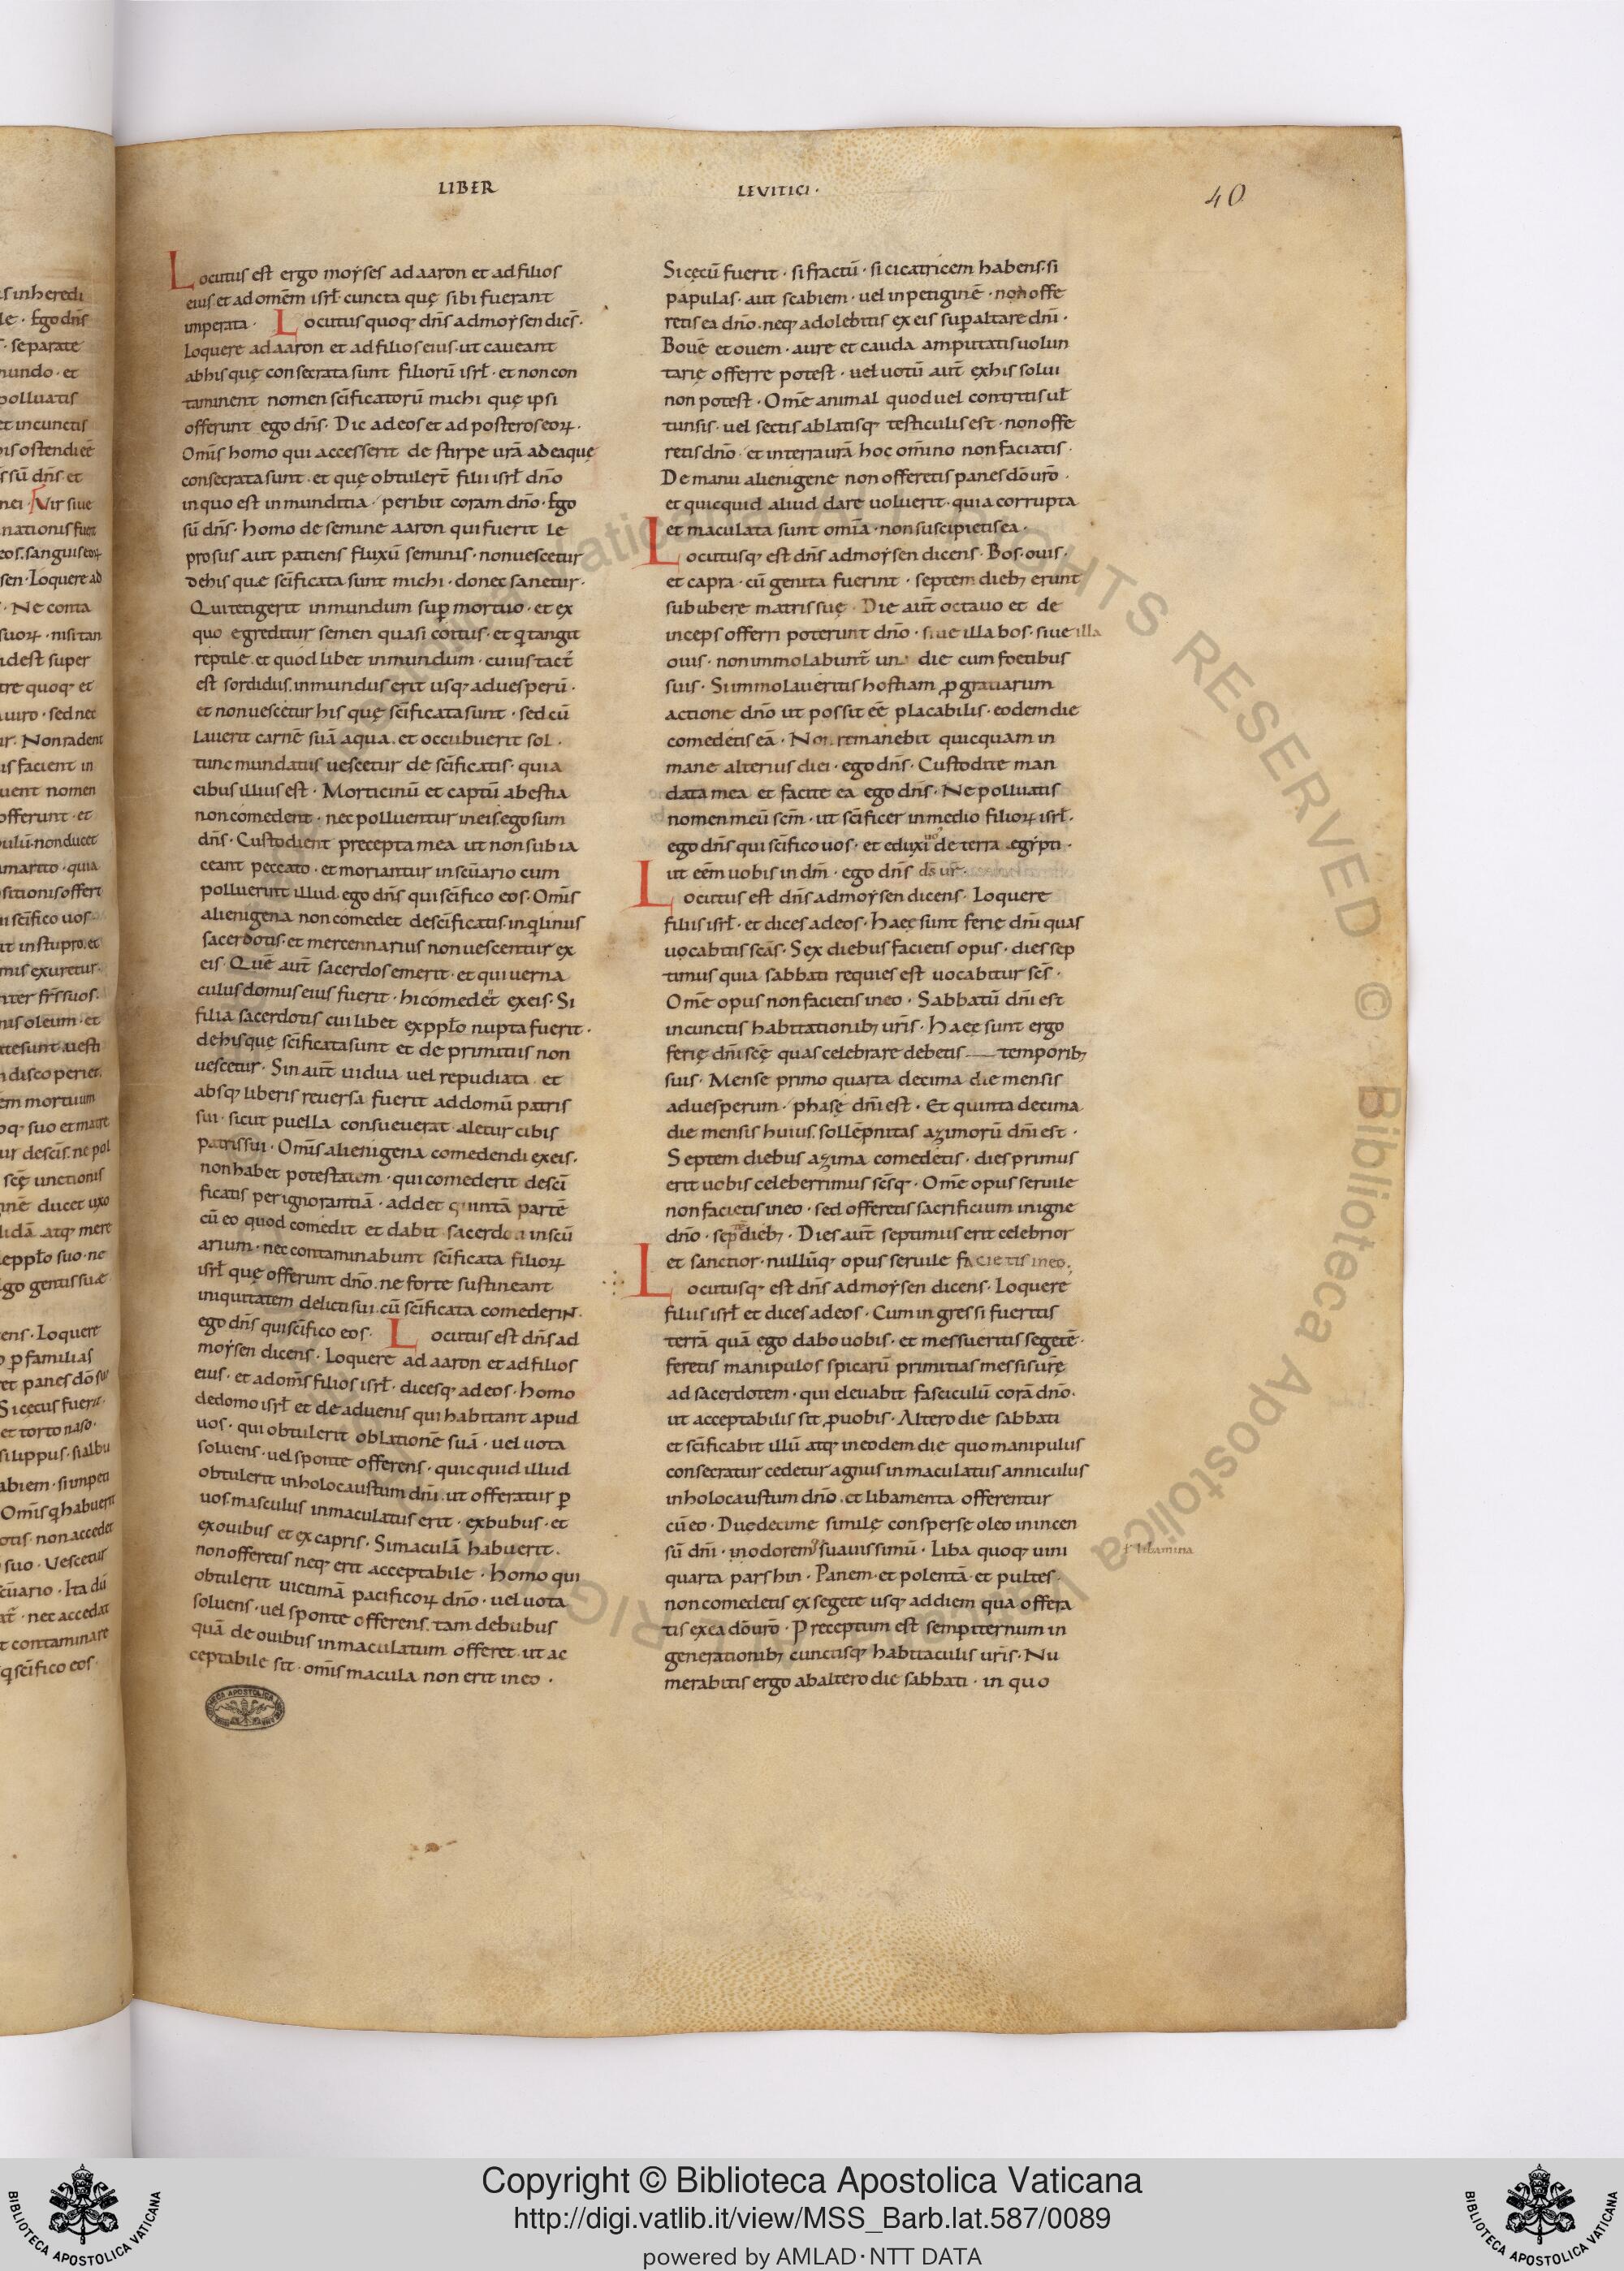 LIBER LEVITICI·
40
Locutus est ergo moẏses ad aaron et ad filios
eius et ad omēm isrł cuncta quę sibi fuerant
imperata· Locutus quoq; dn̄s ad moẏsen dicēs·
Loquere ad aaron et ad filios eius· ut caveant
ab his quę consecrata sunt filiorū isrł· et non con
taminent nomen sc̄ificatorū michi quę ipsi
offerunt ego dn̄s· Dic ad eos et ad posteros eoꝝ·
Om̄is homo qui accesserit de stirpe ur̄a ad ea quę
consecrata sunt· et quę obtuler̄t filii isrł dn̄o
in quo est inmunditia· peribit coram dn̄o· Ego
sū dn̄s· homo de semine aaron qui fuerit le
prosus aut patiens fluxū seminis· non uescetur
de his que sc̄ificata sunt michi· donec sanetur·
Qui tetigerit inmundum sup̄ mortuo· et ex
quo egreditur semen quasi coitus· et q̄ tangit
reptile· et quod libet inmundum· cuius tact̄
est sordidus· inmundus erit usq; ad uesperū·
et non uescetur his quę sc̄ificata sunt· sed cū
lauerit carnē suā aqua· et occubuerit sol·
tunc mundatus uescetur de sc̄ificatis· quia
cibus illius est· Morticinū et captū a bestia
non comedent· nec polluentur in eis· ego sum
dn̄s· Custodient precepta mea ut non subia
ceant peccato· et moriantur in sc̄uario cum
polluerint illud· ego dn̄s qui sc̄ifico eos· Om̄is
alienigena non comedet de sc̄ificatis· inq̄linus
sacerdotis· et mercennarius non uescentur ex
eis· Quē aut̄ sacerdos emerit· et qui uerna
culus domus eius fuerit· hi comedēt ex eis· Si
filia sacerdotis cui libet ex pp̄lo nupta fuerit·
de his quę sc̄ificata sunt et de primitiis non
uescetur· Sin aut̄ uidua uel repudiata et
absq; liberis reuersa fuerit ad domū patris
sui· sicut puella consueuerat aletur cibis
patris sui· Om̄is alienigena comedendi ex eis·
non habet potestatem· qui comederit de sc̄i
ficatis per ignorantiā· addet quintā partē
cū eo quod comedit et dabit sacerdoti in sc̄u
arium· nec contaminabunt sc̄ificata filioꝝ
isrł quę offerunt dn̄o· ne forte sustineant
iniquitatem delicti sui· cū sc̄ificata comederiN·
ego dn̄s qui sc̄ifico eos· Locutus est dn̄s ad
moẏsen dicens· Loquere ad aaron et ad filios
eius· et ad om̄s filios isrł· dicesq; ad eos· homo
de domo isrł et de aduenis qui habitant apud
uos· qui obtulerit oblationē suā· uel uota
soluens· uel sponte offerens· quicquid illud
obtulerit in holocaustum dn̄i· ut offeratur ꝑ
uos· masculus inmaculatus erit· ex bubus· et
ex ouibus et ex capris· Si maculā habuerit·
non offeretis neq; erit acceptabile· homo qui
obtulerit uictimā pacificoꝝ dn̄o· uel uota
soluens· uel sponte offerens· tam de bubus
quā de ouibus inmaculatum offeret ut ac
ceptabile sit· om̄is macula non erit in eo·
Si cęcū fuerit· si fractū· si cicatricem habens· si
papulas· aut scabiem· uel inpetiginē· non offe
retis ea dn̄o· neq; adolebitis ex eis sup̄ altare dn̄i·
Bouē et ouem· aure et cauda amputatis uolun
tarię offerre potest· uel uotū aut̄ ex his solui
non potest· Om̄e animal quod uel contritis uł
tunsis· uel sectis ablatisq; testiculis est· non offe
retis dn̄o· et in terra ur̄ā hoc om̄ino non faciatis·
De manu alienigene non offeretis panes dō ur̄o·
et quicquid aliud dare uoluerit· quia corrupta
et maculata sunt om̄ia· non suscipietis ea·
Locutusq; est dn̄s ad moẏsen dicens· Bos· ouis·
et capra· cū genita fuerint· septem dieb; erunt
sub ubere matris suę· Die aut̄ octauo et de
inceps offerri poterunt dn̄o· siue illa bos· siue illa
ouis· non immolabunt̄ uno die cum foetibus
suis· Si immolaueritis hostiam ꝓ gratiarum
actione dn̄o ut possit eē placabilis· eodem die
comedetis eā· Non remanebit quicquam in
mane alterius diei· ego dn̄s· Custodite man
data mea et facite ea ego dn̄s· Ne polluatis
nomen meū sc̄m· ut sc̄ificer in medio filioꝝ isrł·
ego dn̄s qui sc̄ifico uos· et eduxi uos de terra egẏpti·
ut eēm uobis in dm̄· ego dn̄s ds̄ ur̄·
Locutus est dn̄s ad moẏsen dicens· Loquere
filiis isrł· et dices ad eos· Haec sunt ferię dn̄i quas
uocabitis sc̄as· Sex diebus facietis opus· dies sep
timus quia sabbati requies est uocabitur sc̄s·
Om̄e opus non facietis in eo· Sabbatū dn̄i est
in cunctis habitationib; ur̄is· Haec sunt ergo
ferię dn̄i sc̄ę quas celebrare debetis — temporib;
suis· Mense primo quarta decima die mensis
ad uesperum· phase dn̄i est· Et quinta decima
die mensis huius· sollēpnitas azimorū dn̄i est·
Septem diebus azima comedetis· dies primus
erit uobis celeberrimus sc̄sq;· Om̄e opus seruile
non facietis in eo· sed offeretis sacrificium in igne
dn̄o· sep̄tē dieb;· Dies aut̄ septimus erit celebrior
et sanctior· nullūq; opus seruile facietis in eo·
Locutusq; est dn̄s ad moẏsen dicens· Loquere
filiis isrł et dices ad eos· Cum ingressi fueritis
terrā quā ego dabo uobis· et messueritis segetē·
feretis manipulos spicarū primitias messis ur̄ę
ad sacerdotem· qui eleuabit fasciculū corā dn̄o·
ut acceptabilis sit ꝓ uobis· Altero die sabbati
et sc̄ificabit illū atq; in eodem die quo manipulus
consecratur cedetur agnus inmaculatus anniculus
in holocaustum dn̄o· et libamenta offerentur
cū eo· Due decime similę consperse oleo in incen
sū dn̄i· in odorem suauissimū· Liba quoq; uini
ł libamina
quarta pars hin· Panem· et polentā· et pultes·
non comedetis ex segete usq; ad diem qua offera
tis ex ea dō ur̄o· Preceptum est sempiternum in
generationib; cunctisq; habitaculis ur̄is· Nu
merabitis ergo ab altero die sabbati· in quo
Copyright © Biblioteca Apostolica Vaticana
http://digi.vatlib.it/view/MSS_Barb.lat.587/0089
powered by AMLAD·NTT DATA
BIBLIOTECA APOSTOLICA VATICANA
BIBLIOTECA APOSTOLICA VATICANA